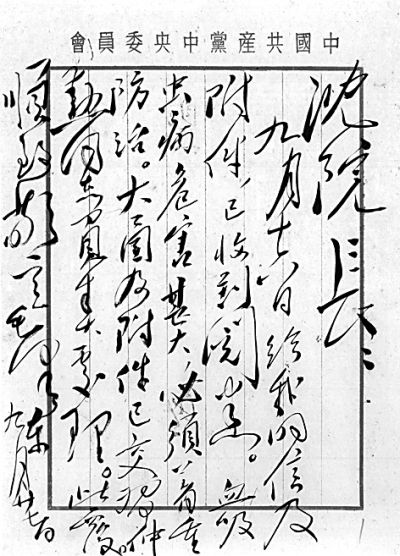 中國共產黨中央委員會
沈院長：
九月十六日給我的信及
附件，已收到閱悉。血吸
虫病危害甚大，必須着重
防治。大函及附件已交習仲
勳同志負責處理。此覆。
順致敬意 毛澤東
九月廿七日